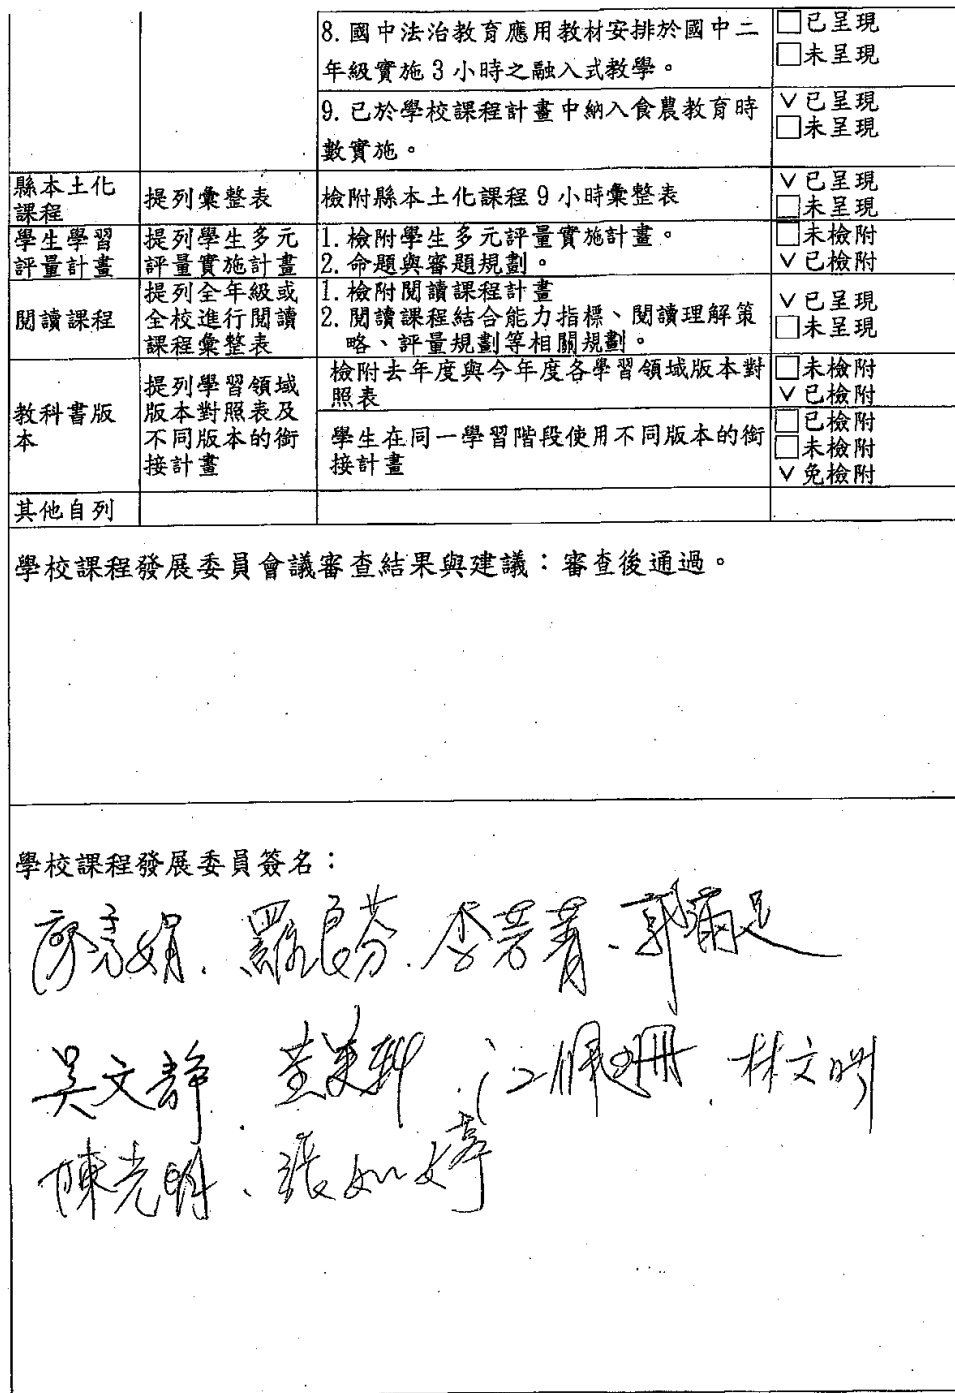 8. 國中法治教育應用教材安排於國中二
年級實施 3 小時之融入式教學。
□已呈現
□未呈現
9. 已於學校課程計畫中納入食農教育時
數實施。
∨已呈現
□未呈現
縣本土化
課程
提列彙整表
檢附縣本土化課程 9 小時彙整表
∨已呈現
□未呈現
學生學習
評量計畫
提列學生多元
評量實施計畫
1. 檢附學生多元評量實施計畫。
2. 命題與審題規劃。
□未檢附
∨已檢附
閱讀課程
提列全年級或
全校進行閱讀
課程彙整表
1. 檢附閱讀課程計畫
2. 閱讀課程結合能力指標、閱讀理解策
略、評量規劃等相關規劃。
∨已呈現
□未呈現
教科書版
本
提列學習領域
版本對照表及
不同版本的銜
接計畫
檢附去年度與今年度各學習領域版本對
照表
□未檢附
∨已檢附
學生在同一學習階段使用不同版本的銜
接計畫
□已檢附
□未檢附
∨免檢附
其他自列
學校課程發展委員會議審查結果與建議：審查後通過。
學校課程發展委員簽名：
廖亮娟、羅良芬、李若菁、郭滿足
吳文靜、江佩珊、林文
陳光明、張如婷